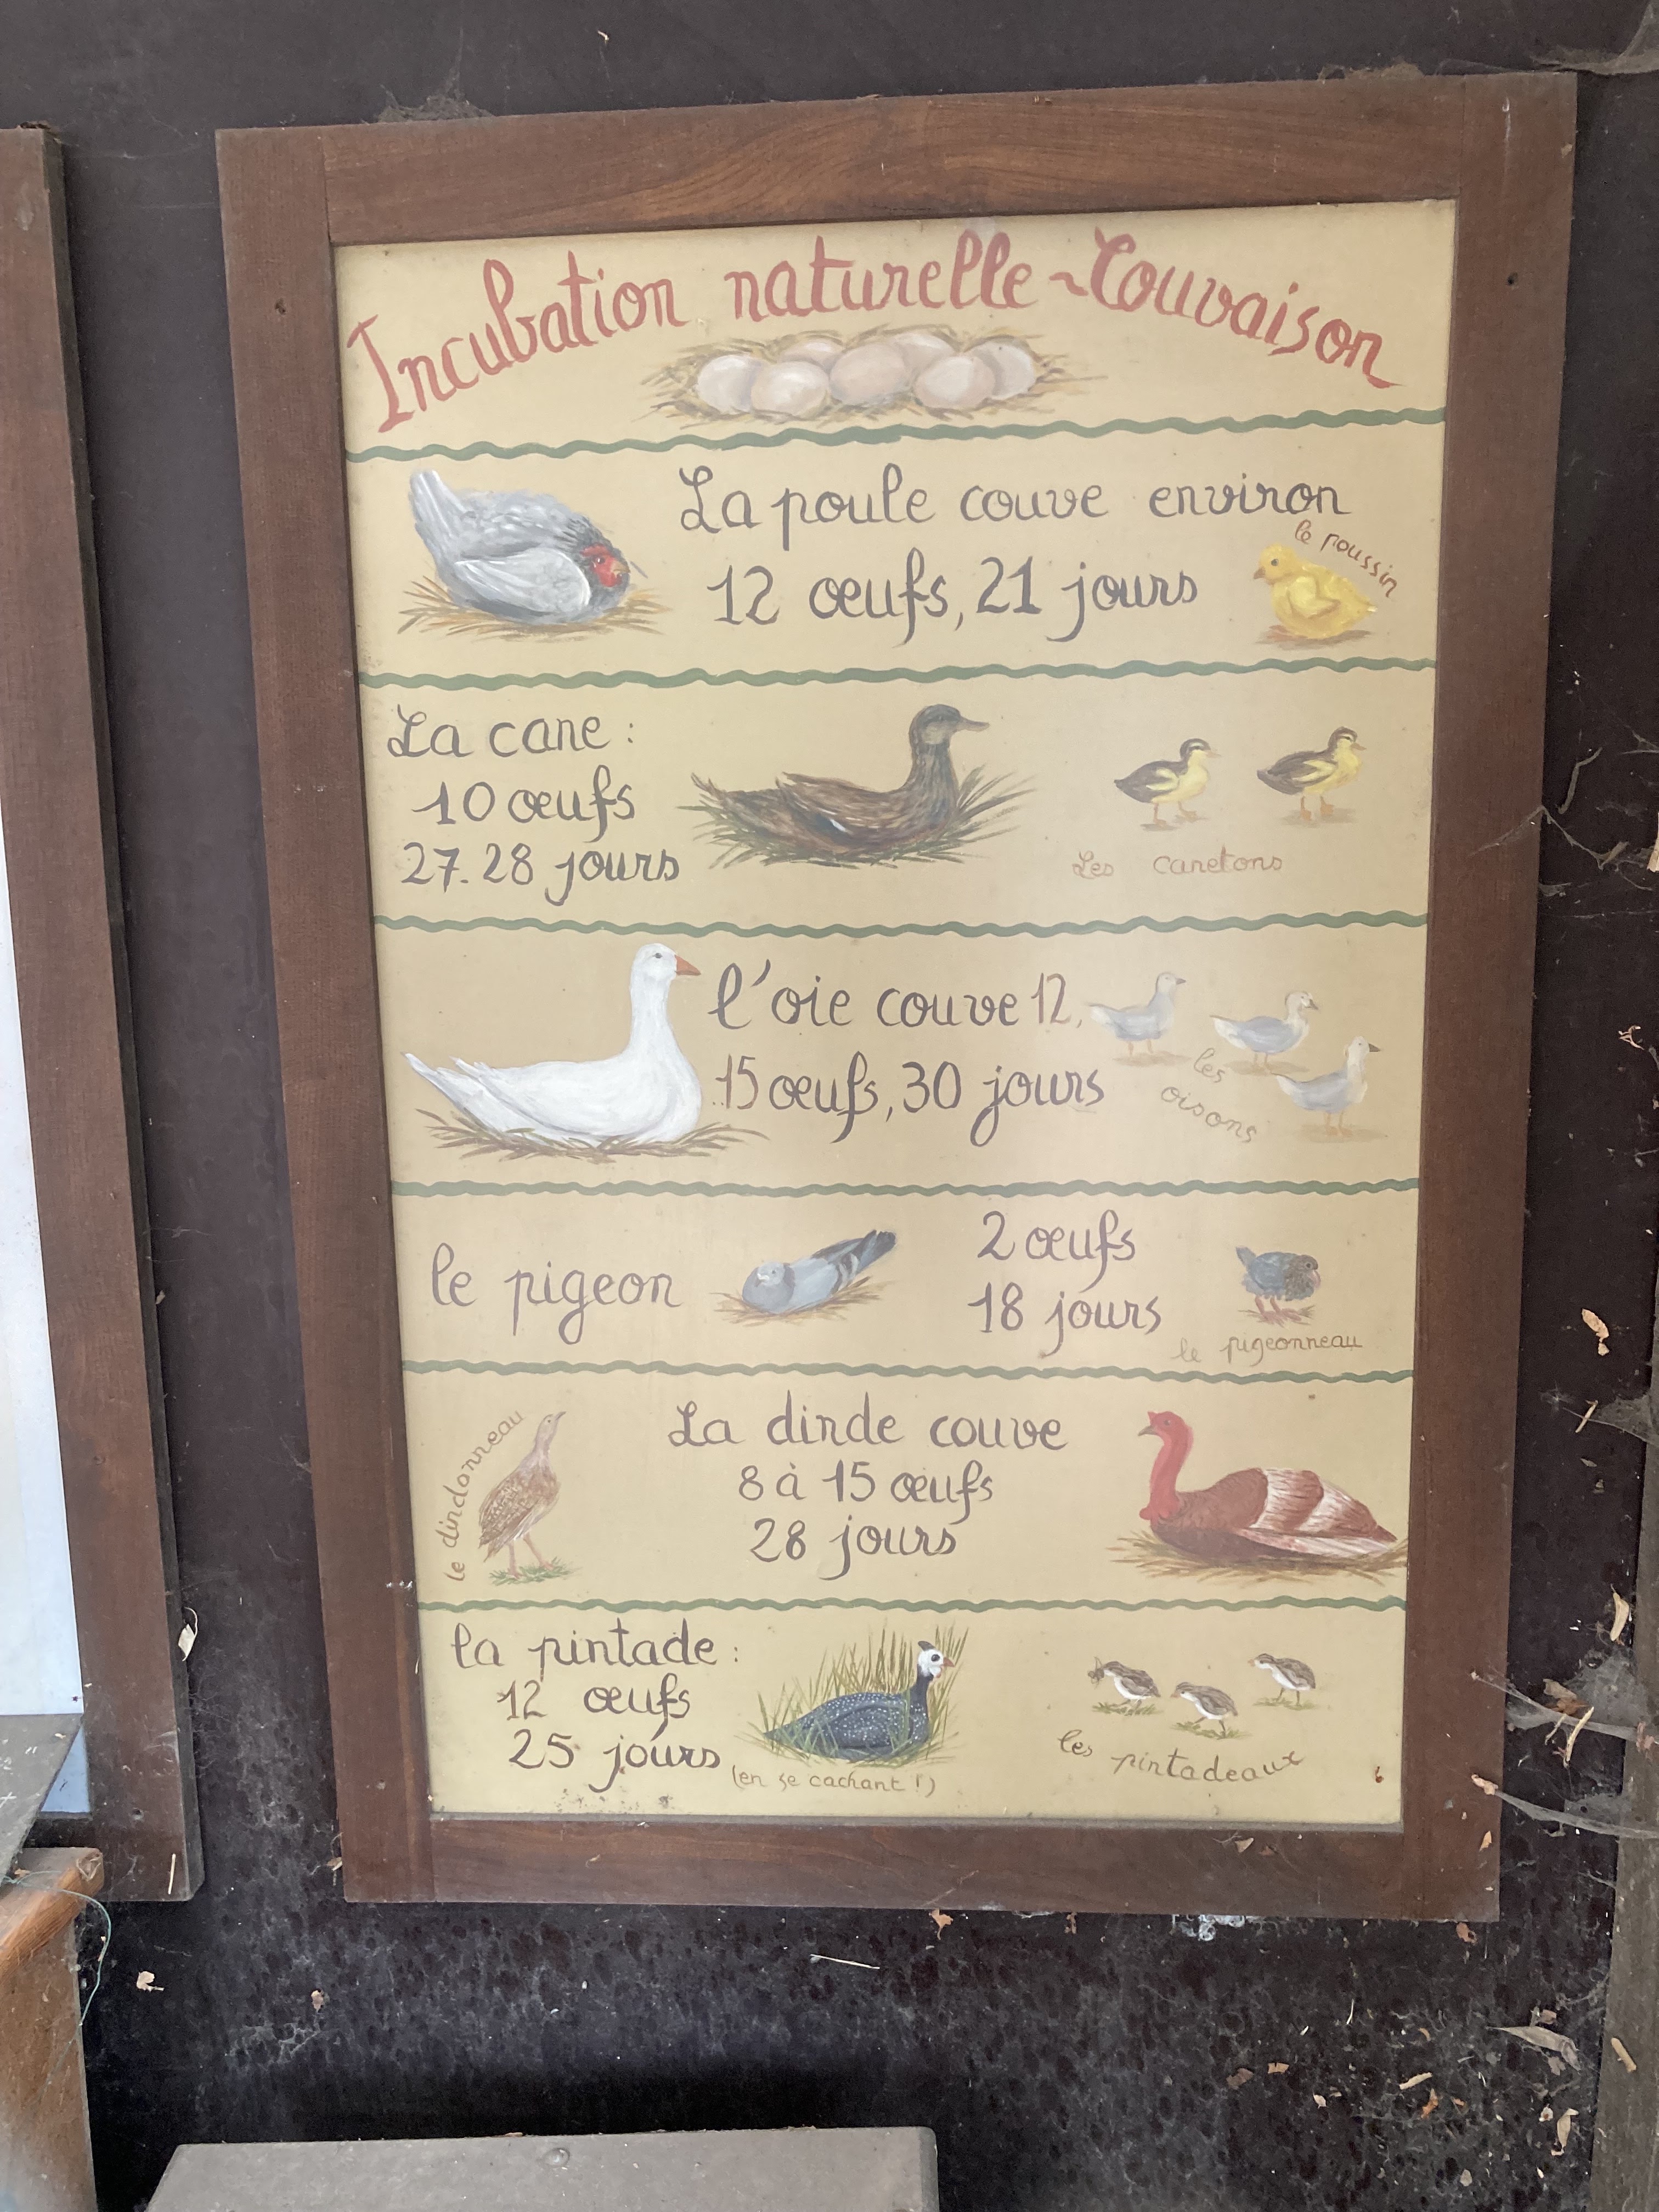 Incubation naturelle ~ Couvaison
La poule couve environ
12 œufs, 21 jours
le poussin
La cane :
10 œufs
27.28 jours
Les canetons
l'oie couve 12,
15 œufs, 30 jours
les
oisons
le pigeon
2 œufs
18 jours
le pigeonneau
le dindonneau
La dinde couve
8 à 15 œufs
28 jours
la pintade :
12 œufs
25 jours
(en se cachant !)
les pintadeaux